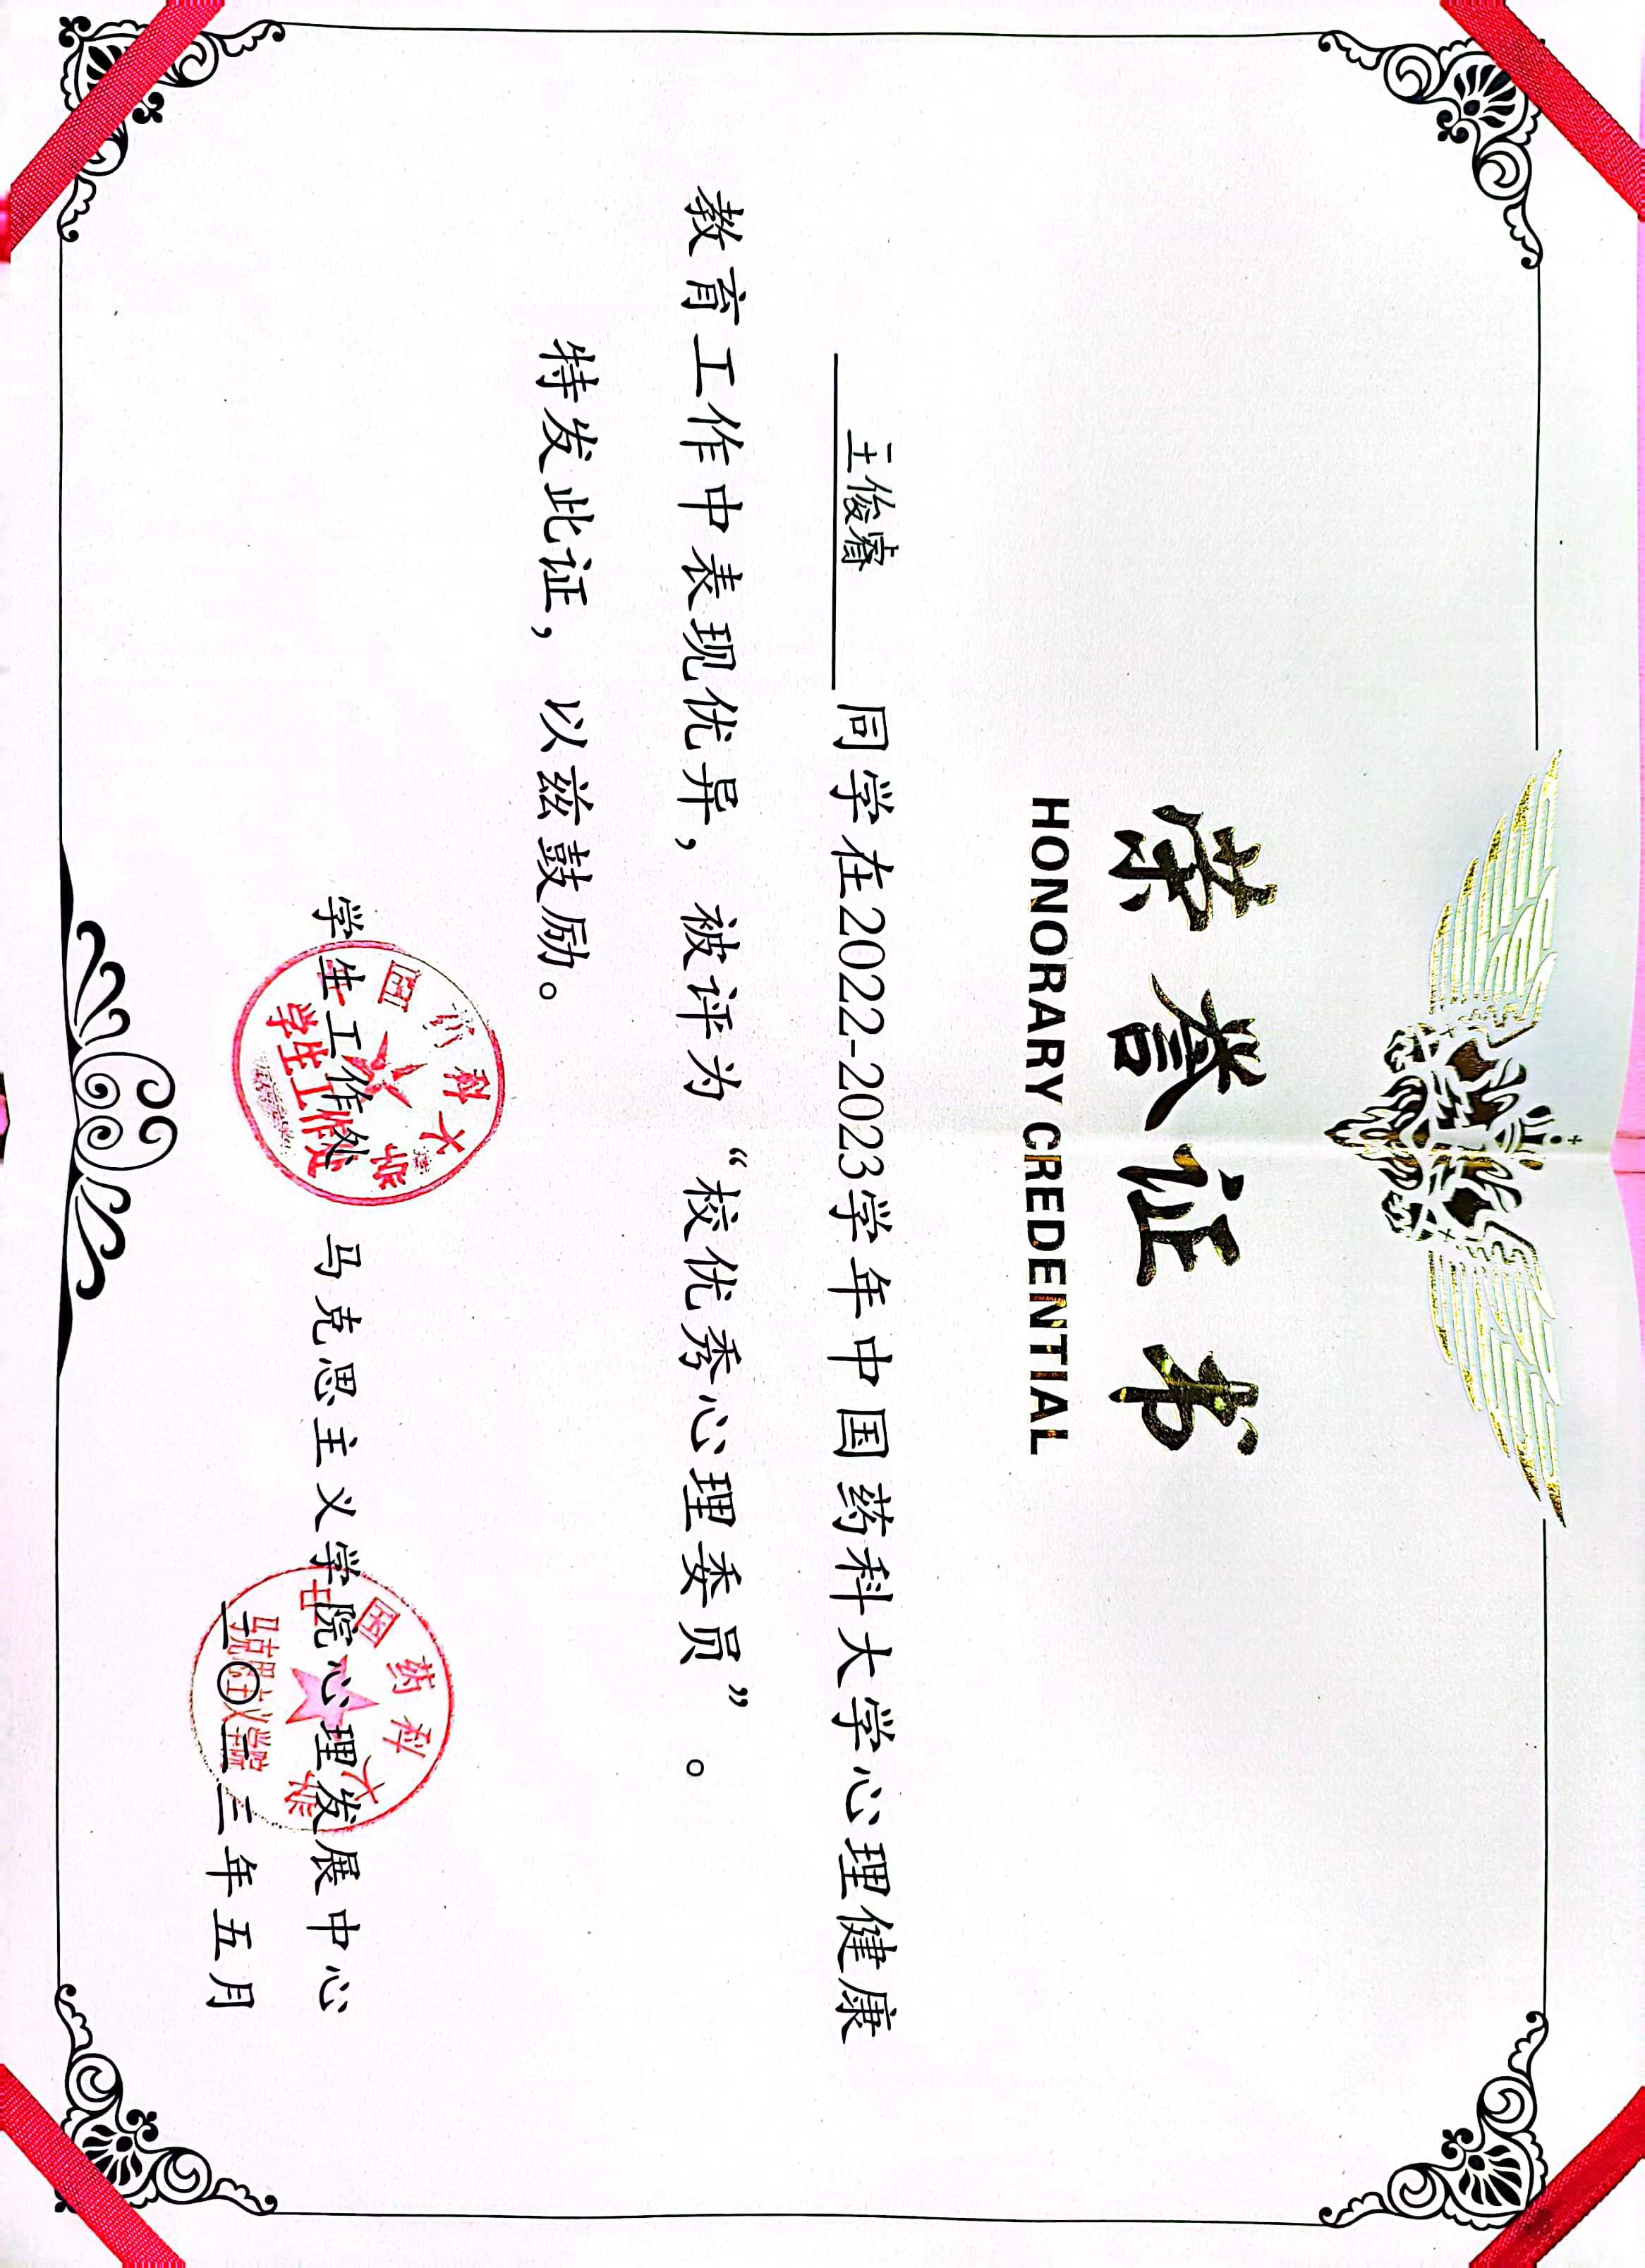 荣誉证书
HONORARY CREDENTIAL
王俊睿 同学在2022-2023学年中国药科大学心理健康
教育工作中表现优异，被评为“校优秀心理委员”。
特发此证，以兹鼓励。
学生工作处 马克思主义学院心理发展中心
二〇二三年五月
中国药科大学
学生工作处
中国药科大学
马克思主义学院